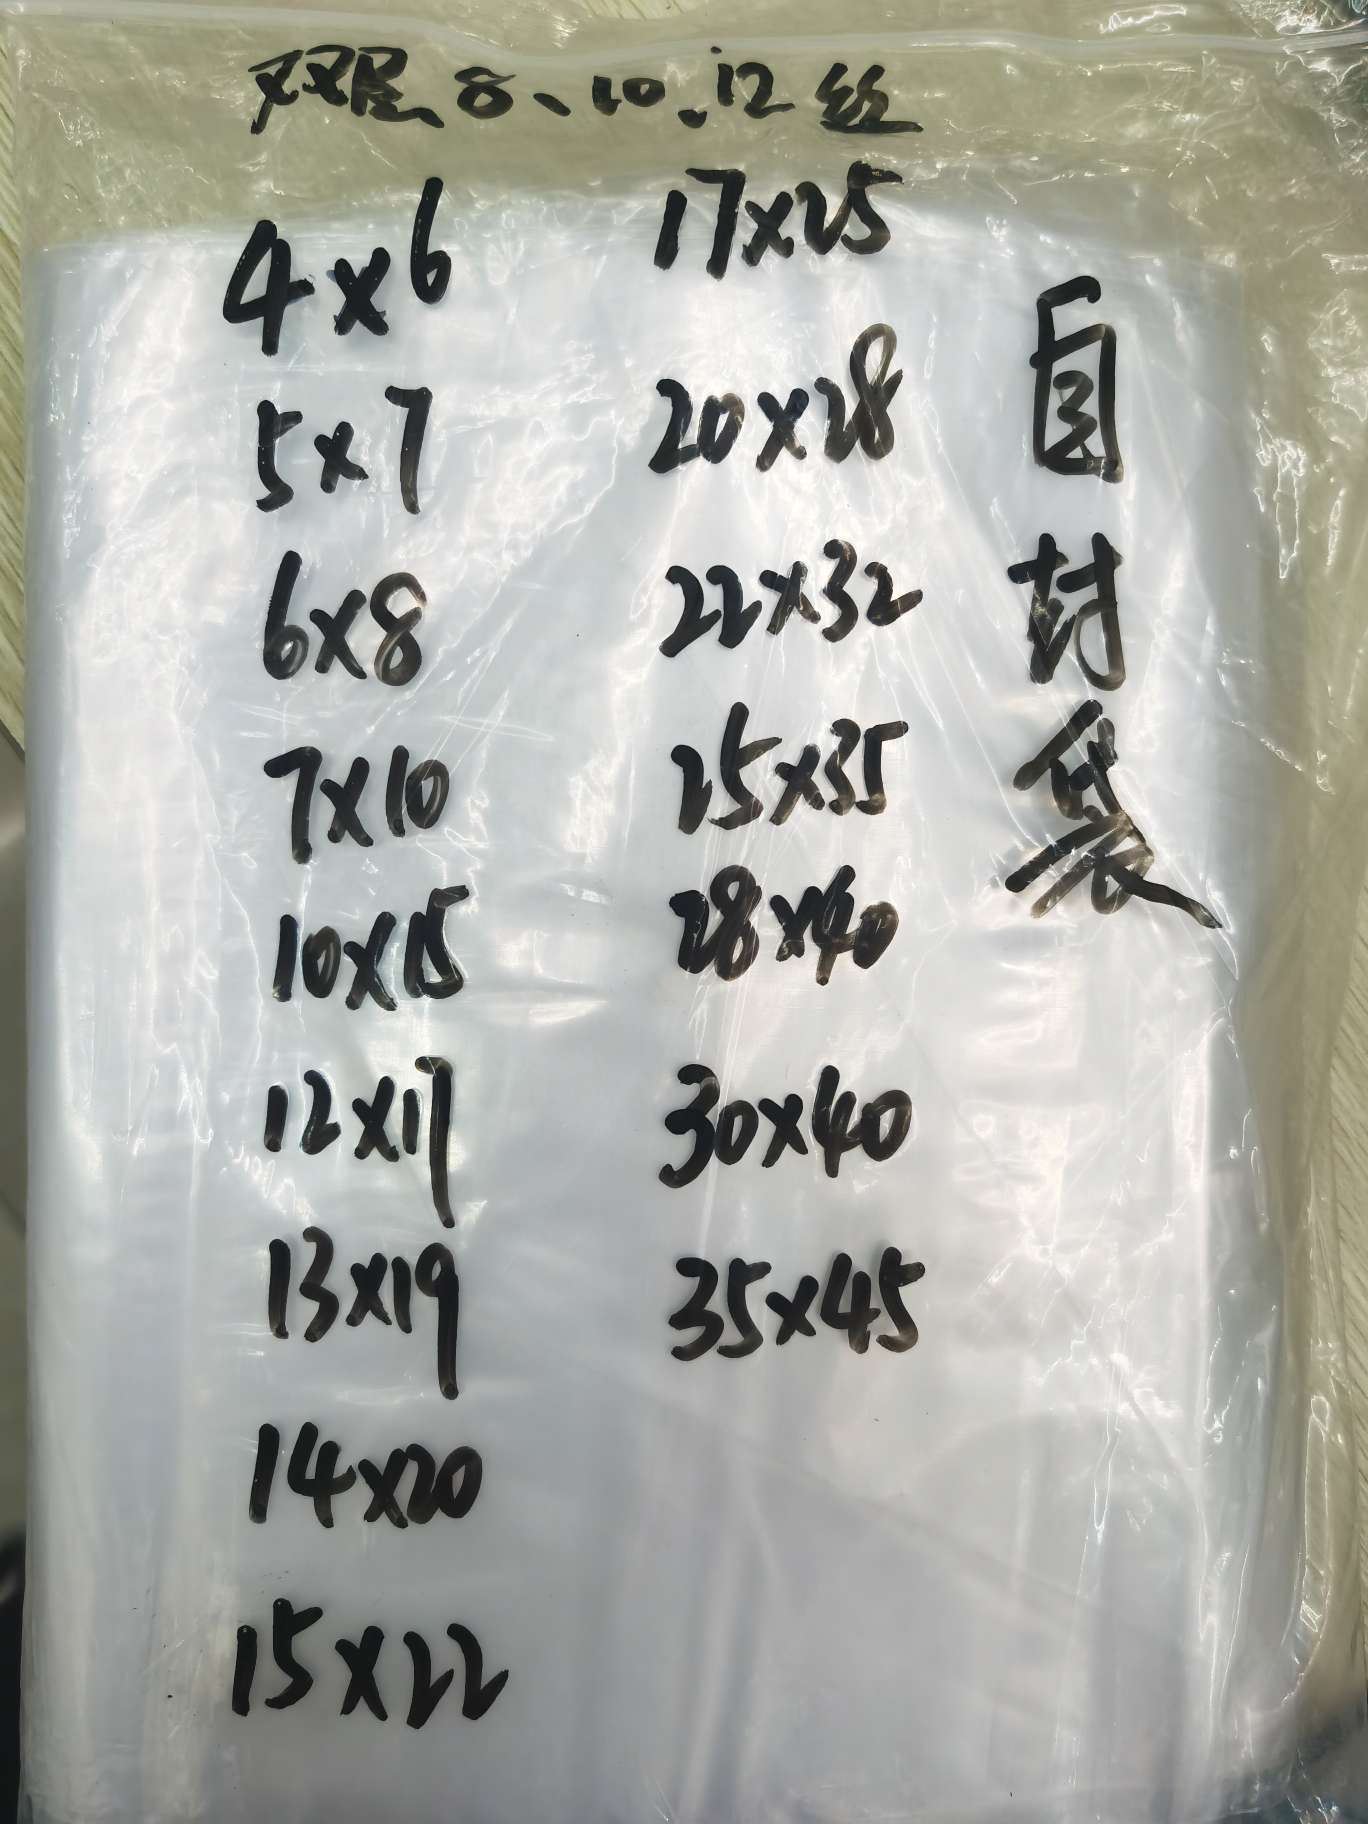 双层 8、10、12丝
4×6
5×7
6×8
7×10
10×15
12×17
13×19
14×20
15×22
17×25
20×28
22×32
25×35
28×40
30×40
35×45
自封袋